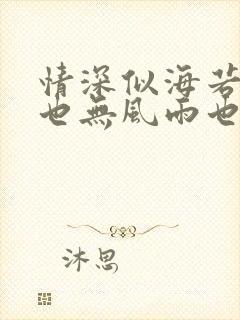 情深似海若
也無風雨也
沐思